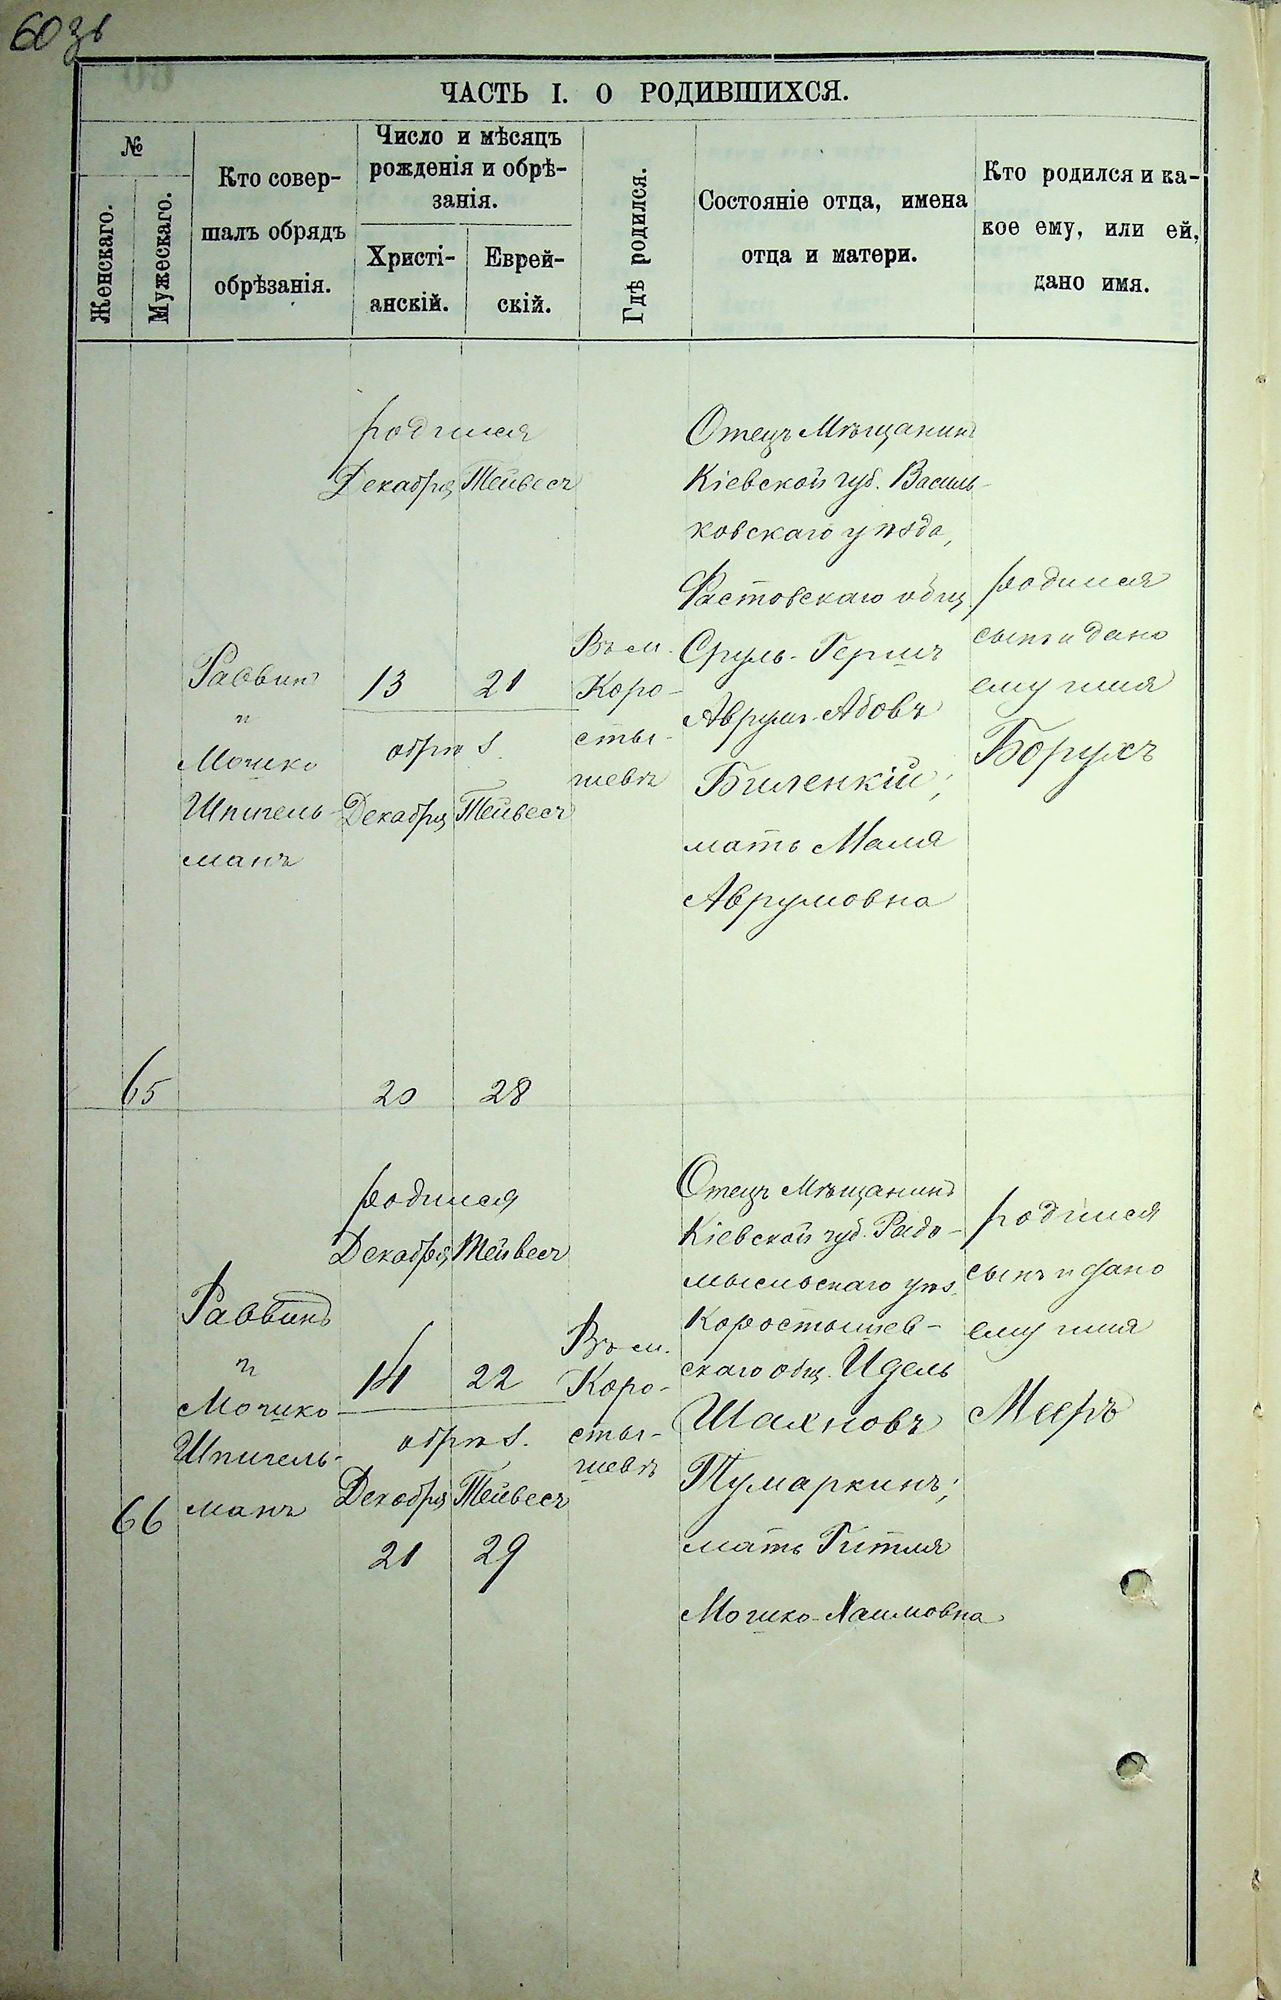 60 зв
ЧАСТЬ I. О РОДИВШИХСЯ.
№
Женскаго.
Мужескаго.
Кто совер-
шалъ обрядъ
обрѣзанія.
Число и мѣсяцъ
рожденія и обрѣ-
занія.
Христі-
анскій.
Еврей-
скій.
Гдѣ родился.
Состояніе отца, имена
отца и матери.
Кто родился и ка-
кое ему, или ей,
дано имя.
65
Раввинъ
и
Мошко
Шпигель-
манъ
родился
Декабря Тейвесъ
13 21
обрѣз.
Декабря Тейвесъ
20 28
Въ м.
Коро-
сты-
шевѣ
Отецъ Мѣщанинъ
Кіевской губ. Василь-
ковскаго уѣзда,
Фастовскаго общ.
Сруль-Гершъ
Аврумъ-Абовъ
Биленкій;
мать Маля
Аврумовна
родился
сынъ и дано
ему имя
Борухъ
66
Раввинъ
и
Мошко
Шпигель-
манъ
родился
Декабря Тейвесъ
14 22
обрѣз.
Декабря Тейвесъ
21 29
Въ м.
Коро-
сты-
шевѣ
Отецъ Мѣщанинъ
Кіевской губ. Радо-
мысльскаго уѣз.
Коростышев-
скаго общ. Йдель
Шахновъ
Пумаркинъ;
мать Гитля
Мошко-Хаимовна
родился
сынъ и дано
ему имя
Мееръ